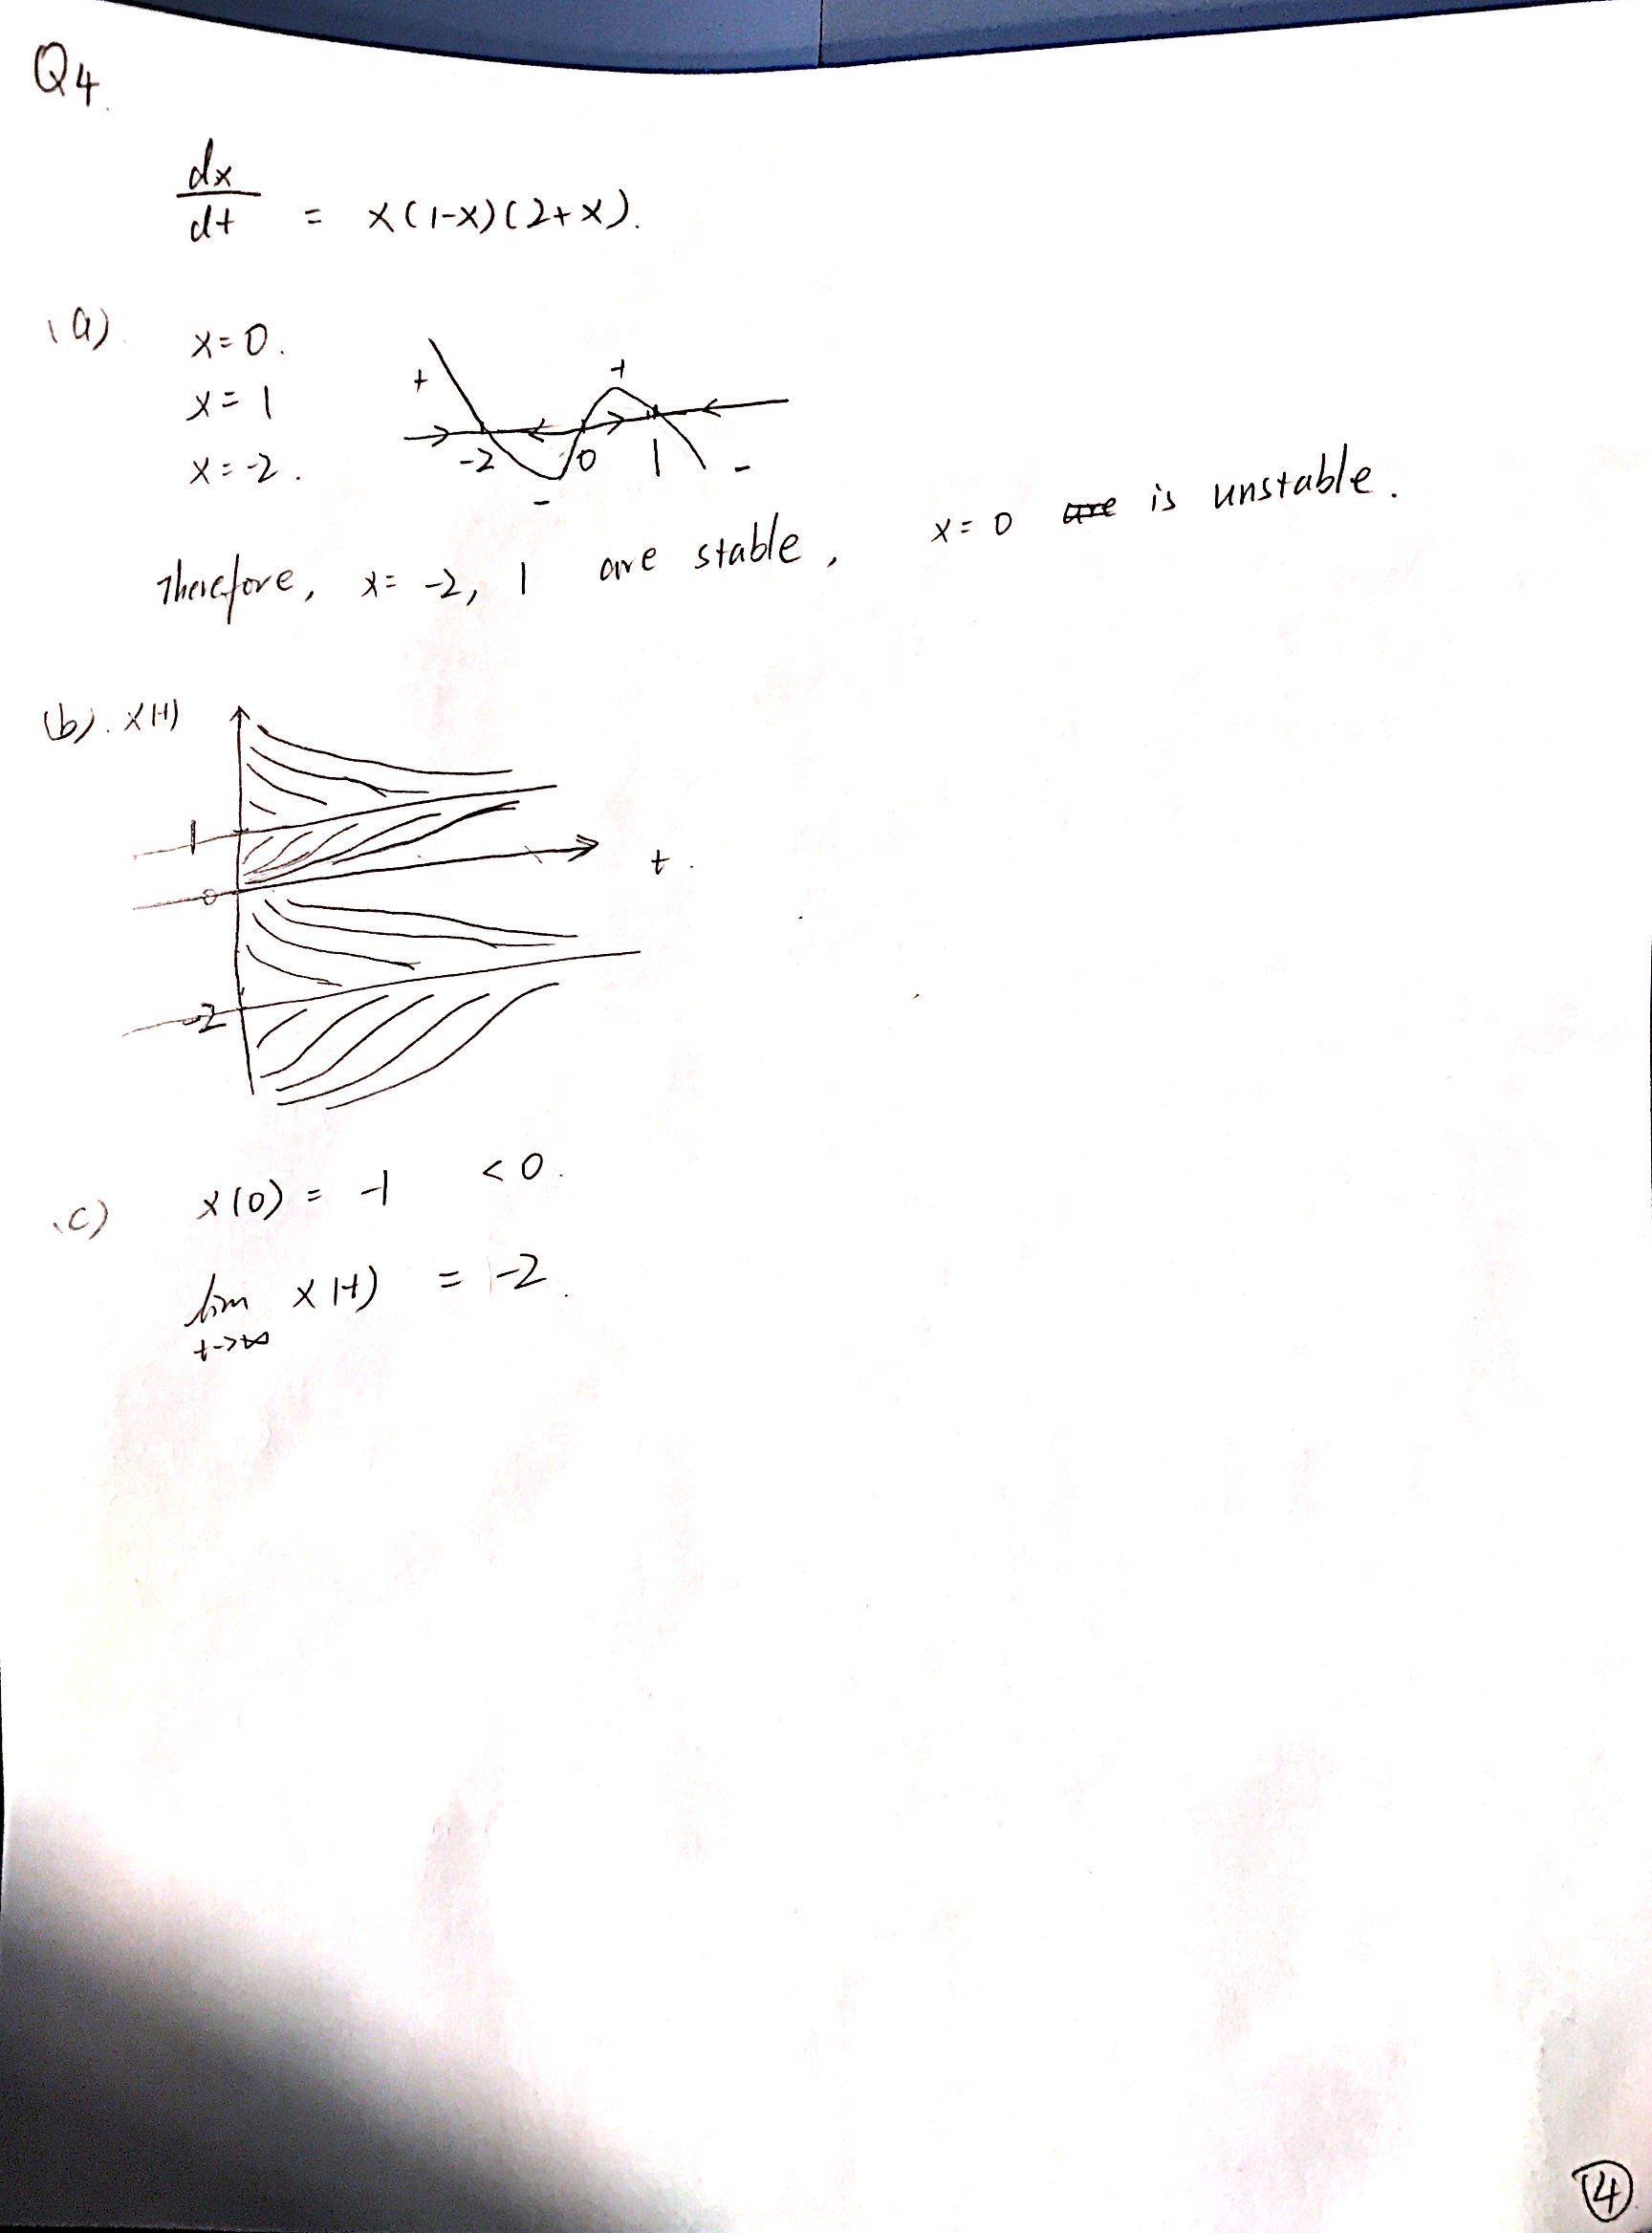 Q4.
dx/dt = x(1-x)(2+x).
(a) x=0.
x=1
x=-2.
+ + - -
-2 0 1
Therefore, x= -2, 1 are stable, x=0 ~~are~~ is unstable.
(b). x(t)
1
0
t.
-2
(c) x(0) = -1 <0.
lim x(t) = -2.
t->∞
4